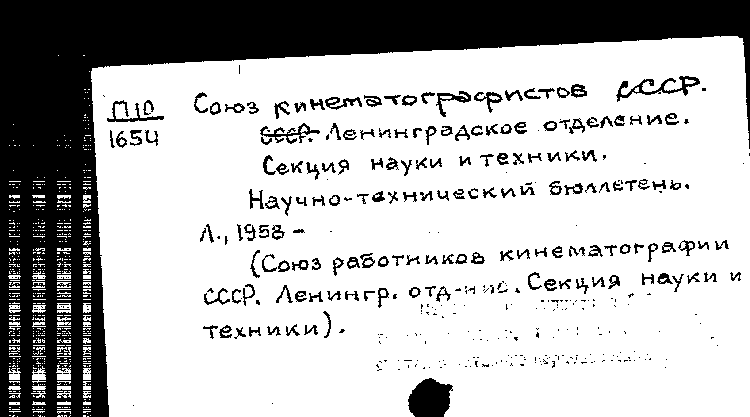 П10 Союз кинематографистов СССР.
1654 СССР. Ленинградское отделение.
Секция науки и техники.
Научно-технический бюллетень.
Л., 1958 -
(Союз работников кинематографии
СССР. Ленингр. отд-ние. Секция науки и
техники).